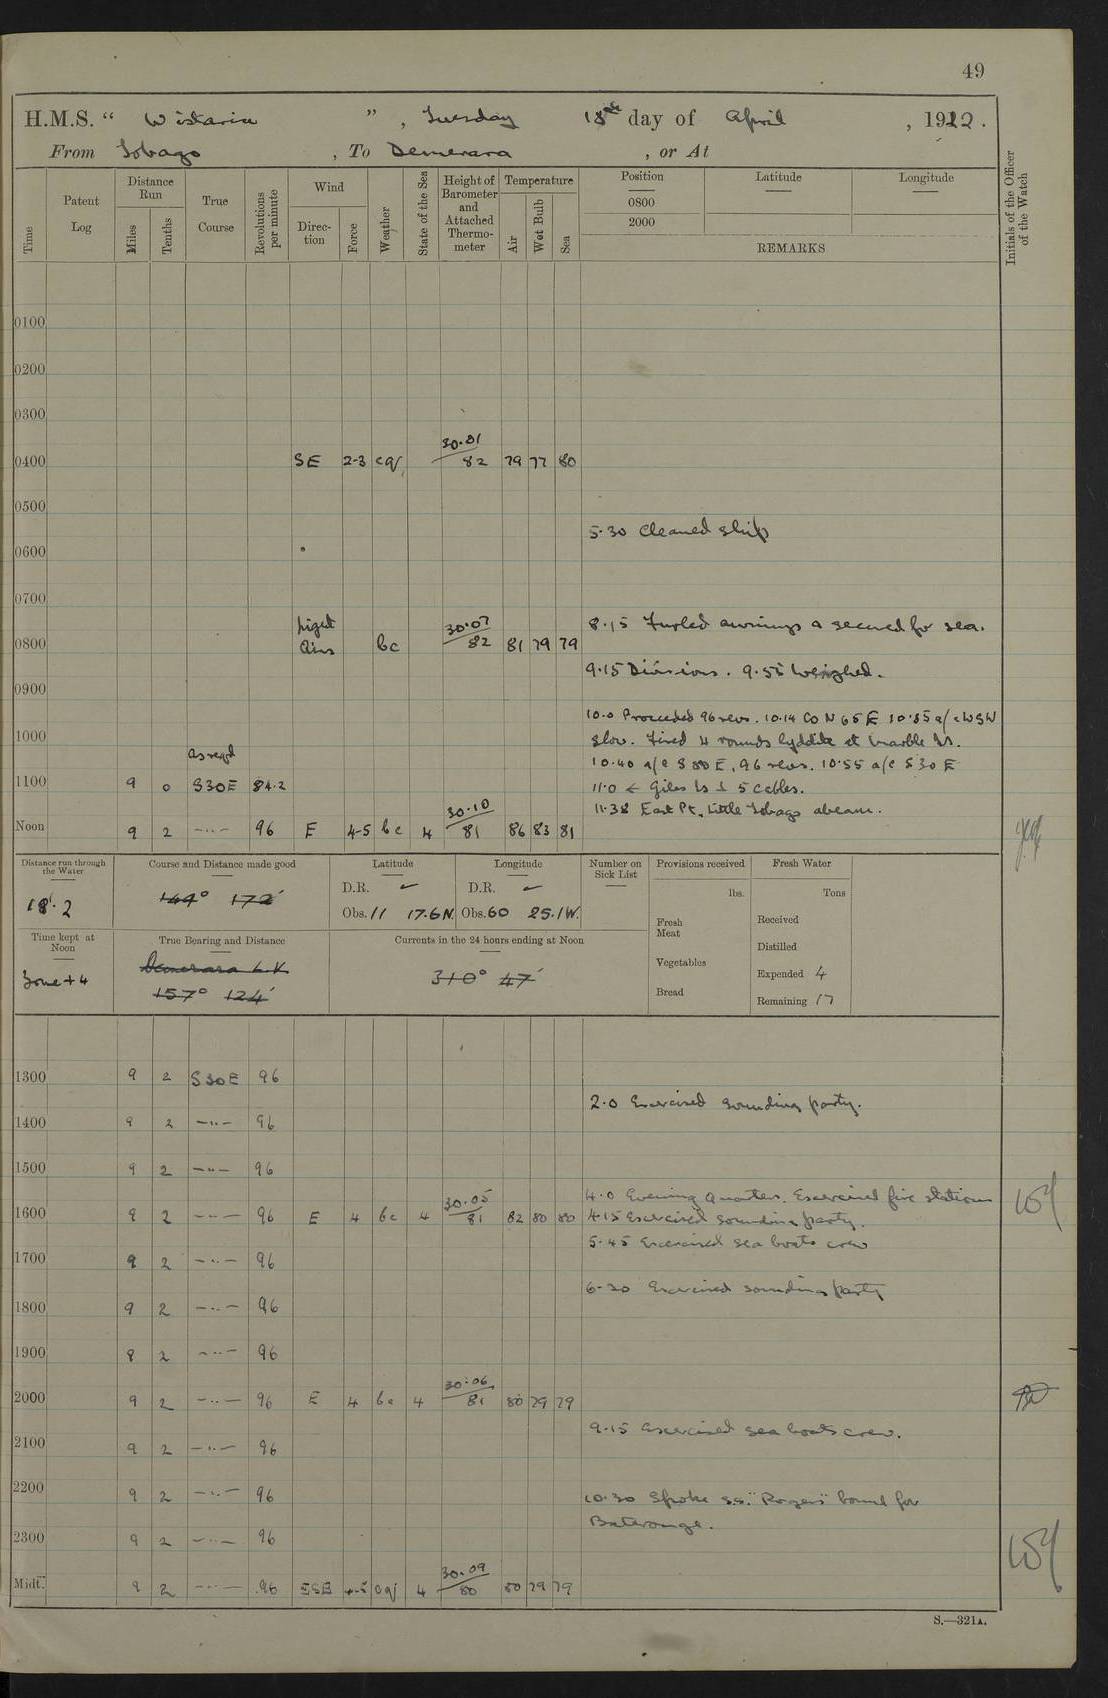 49
H.M.S. “ Wistaria ” , Tuesday 18th day of April , 1922.
From Tobago , To Demerara , or At
Time
Patent Log
Distance Run
Miles
Tenths
True Course
Revolutions per minute
Wind
Direc-tion
Force
Weather
State of the Sea
Height of Barometer and Attached Thermo-meter
Temperature
Air
Wet Bulb
Sea
Position
0800
2000
Latitude
Longitude
REMARKS
Initials of the Officer of the Watch
0100
0200
0300
0400 SE 2-3 cq 30.01 82 79 77 80
0500
5.30 Cleaned ship
0600
0700
8.15 Furled awnings & secured for sea.
0800 Light Airs bc 30.07 82 81 79 79
9.15 Divisions. 9.55 Weighed.
0900
10.0 Proceeded 96 revs. 10.14 Co N 65 E 10.35 a/c WSW
1000
slow. Fired 4 rounds lyddite at Marble Is.
as reqd
10.40 a/c S 80 E, 96 revs. 10.55 a/c S 30 E
1100 9 0 S30E 84.2
11.0 Giles Is 5 cables.
11.38 East Pt. Little Tobago abeam.
Noon 9 2 -··- 96 E 4-5 bc 4 30.10 81 86 83 81
Distance run through the Water
18.2
Course and Distance made good
149° 172'
Latitude
D.R. ✓
Obs. 11 17.6 N.
Longitude
D.R. ✓
Obs. 60 25.1 W.
Number on Sick List
Provisions received
lbs.
Fresh Meat
Vegetables
Bread
Fresh Water
Tons
Received
Distilled
Expended 4
Remaining 17
Time kept at Noon
Zone +4
True Bearing and Distance
Demerara L.V.
157° 124'
Currents in the 24 hours ending at Noon
310° 47'
1300 9 2 S30E 96
2.0 Exercised sounding party.
1400 9 2 -··- 96
1500 9 2 -··- 96
4.0 Evening Quarters. Exercised fire stations
1600 9 2 -··- 96 E 4 bc 4 30.05 81 82 80 80
4.15 Exercised sounding party.
5.45 Exercised sea boats crew
1700 9 2 -··- 96
6-30 Exercised sounding party
1800 9 2 -··- 96
1900 9 2 -··- 96
2000 9 2 -··- 96 E 4 bc 4 30.06 81 80 79 79
9.15 Exercised sea boats crew.
2100 9 2 -··- 96
2200 9 2 -··- 96
10.30 Spoke s.s. "Rogers" bound for
2300 9 2 -··- 96
Midt. 9 2 -··- 96 ESE 4-5 cqj 4 30.09 80 80 79 79
S.—321A.